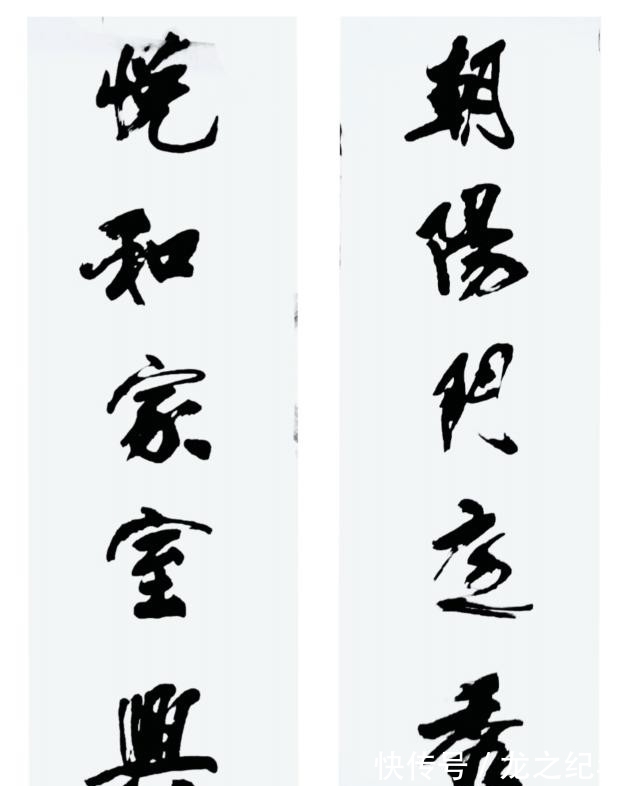 朝陽門庭秀
悦和家室興
快传号/龙之纪